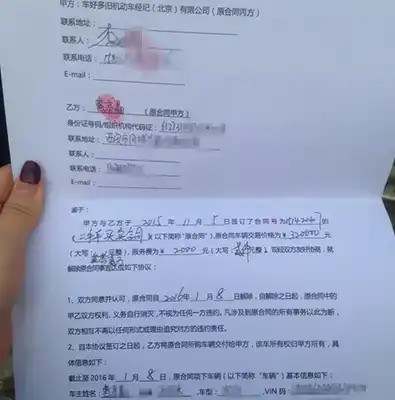 甲方：车好多旧机动车经纪（北京）有限公司（原合同丙方）
联系地址：
联系人：
联系电话：
E-mail：
乙方： （原合同甲方）
身份证号码/组织机构代码证：
联系地址：
联系人：
联系电话：
E-mail：
鉴于：
甲方与乙方于 2015 年 11 月 5 日签订了合同号为 的
（以下简称“原合同”），原合同车辆交易价格为￥320000 元
（大写 整），服务费为￥ 2000 元（大写 整），现经双方友好协商，就
解除原合同事宜达成如下协议：
1、双方同意并认可，原合同自 2016 年 1 月 8 日解除，自解除之日起，原合同中的
甲乙双方权利、义务自行消灭，不视为任何一方违约。凡涉及到原合同的所有事务以此为断，
双方相互不再以任何形式或理由追究对方的违约责任。
2、自本协议签订之日起，乙方将原合同所购车辆交付给甲方，该车所有权归甲方所有，具
体信息如下：
截止至 2016 年 1 月 8 日，原合同项下车辆（以下简称“车辆”）基本信息如下：
车主姓名： ，车型： ，VIN 码：